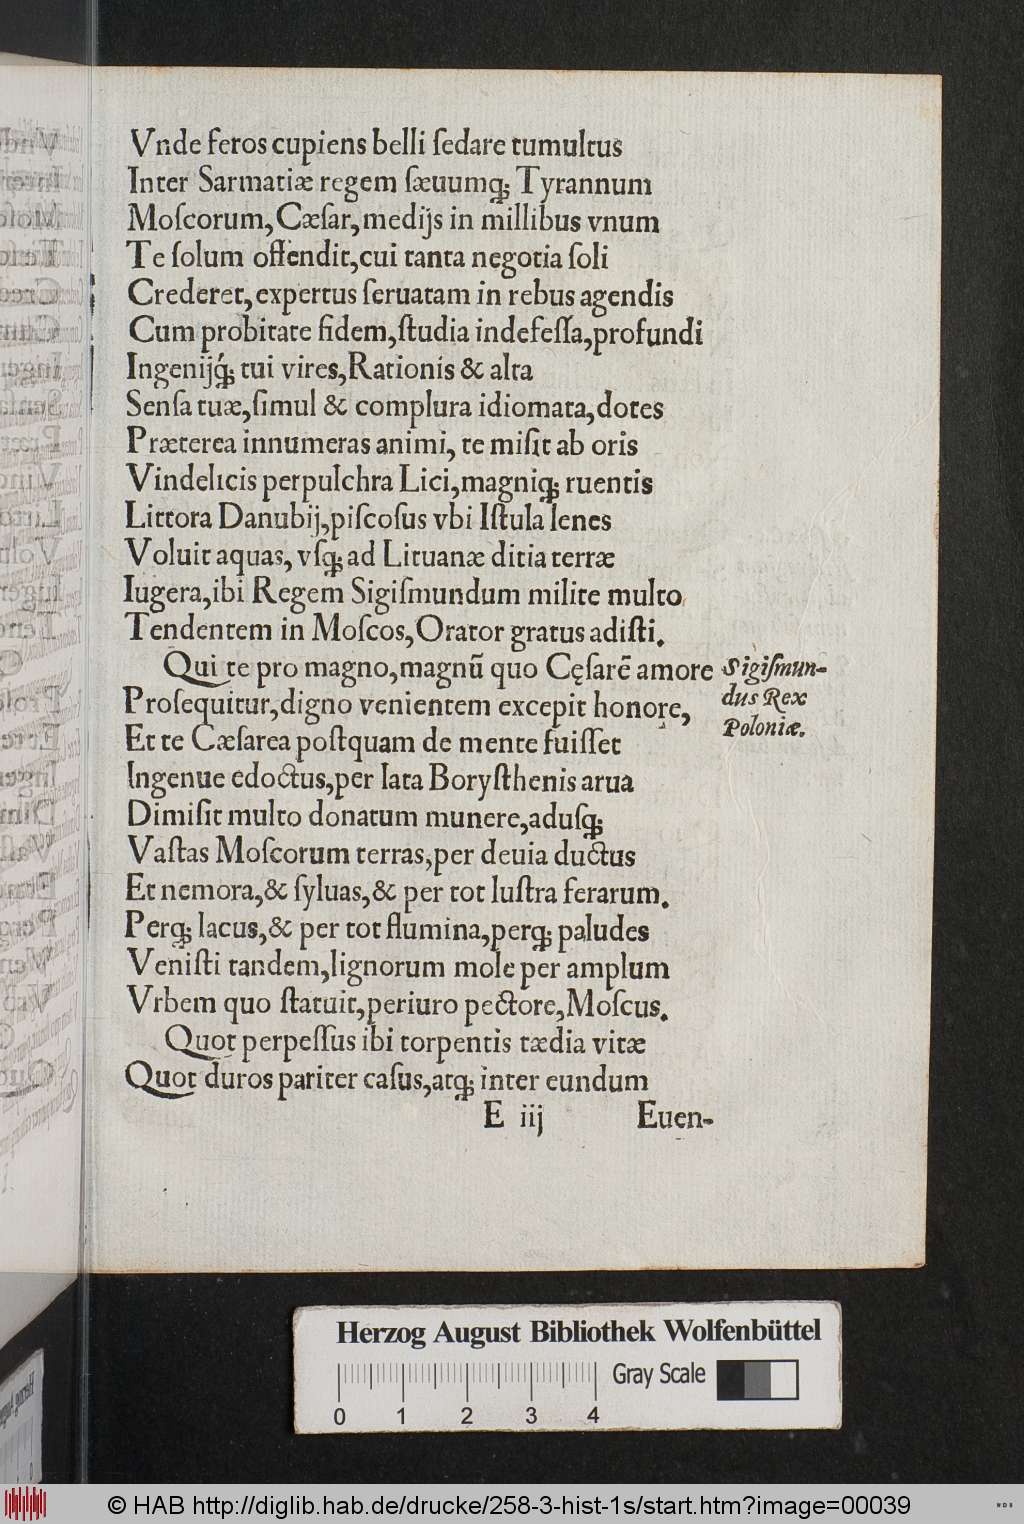 Vnde feros cupiens belli ſedare tumultus
Inter Sarmatiæ regem ſæuumq́; Tyrannum
Moſcorum, Cæſar, medijs in millibus vnum
Te ſolum offendit, cui tanta negotia ſoli
Crederet, expertus ſeruatam in rebus agendis
Cum probitate fidem, ſtudia indefeſſa, profundi
Ingenijq́; tui vires, Rationis & alta
Senſa tuæ, ſimul & complura idiomata, dotes
Præterea innumeras animi, te miſit ab oris
Vindelicis perpulchra Lici, magniq; ruentis
Littora Danubij, piſcoſus vbi Iſtula lenes
Voluit aquas, vſq; ad Lituanæ ditia terræ
Iugera, ibi Regem Sigiſmundum milite multo
Tendentem in Moſcos, Orator gratus adiſti.
Qui te pro magno, magnũ quo Cęſarẽ amore
Proſequitur, digno venientem excepit honore,
Et te Cæſarea poſtquam de mente fuiſſet
Ingenue edoctus, per lata Boryſthenis arua
Dimiſit multo donatum munere, aduſq;
Vaſtas Moſcorum terras, per deuia ductus
Et nemora, & ſyluas, & per tot luſtra ferarum.
Perq; lacus, & per tot flumina, perq; paludes
Veniſti tandem, lignorum mole per amplum
Vrbem quo ſtatuit, periuro pectore, Moſcus.
Quot perpeſſus ibi torpentis tædia vitæ
Quot duros pariter caſus, atq; inter eundum
E iij Euen-
Sigiſmun-
dus Rex
Poloniæ.
Herzog August Bibliothek Wolfenbüttel
Gray Scale
0 1 2 3 4
© HAB http://diglib.hab.de/drucke/258-3-hist-1s/start.htm?image=00039